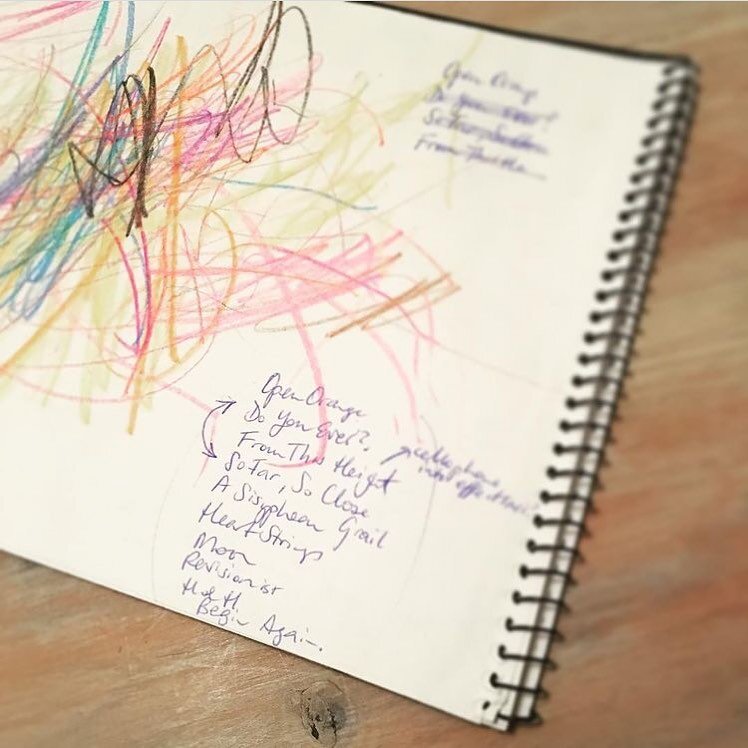 Open Orange
Do you ever?
So Far
From This
Open Orange
Do You Ever?
From This Height
So Far, So Close
A Sisyphean Grail
Heart Strings
Moon
Revisionist
Begin Again.